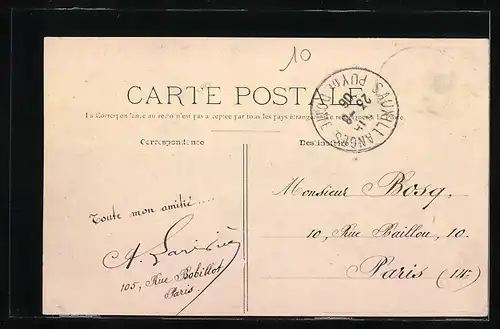 10
CARTE POSTALE
La Correspondance au recto n'est pas acceptée par tous les pays étrangers
SAUXILLANGES
PUY DE DOME
23 -8
08
Correspondance
Destinataire
Toute mon amitié....
A.
105, Rue Bobillot
Paris.
Monsieur Bosq,
10, Rue Baillou, 10.
Paris (14e)